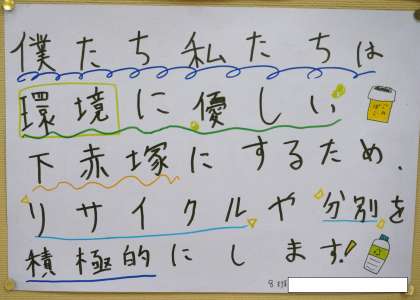 僕たち私たちは
環境に優しい
下赤塚にするため、
リサイクルや分別を
積極的にします!